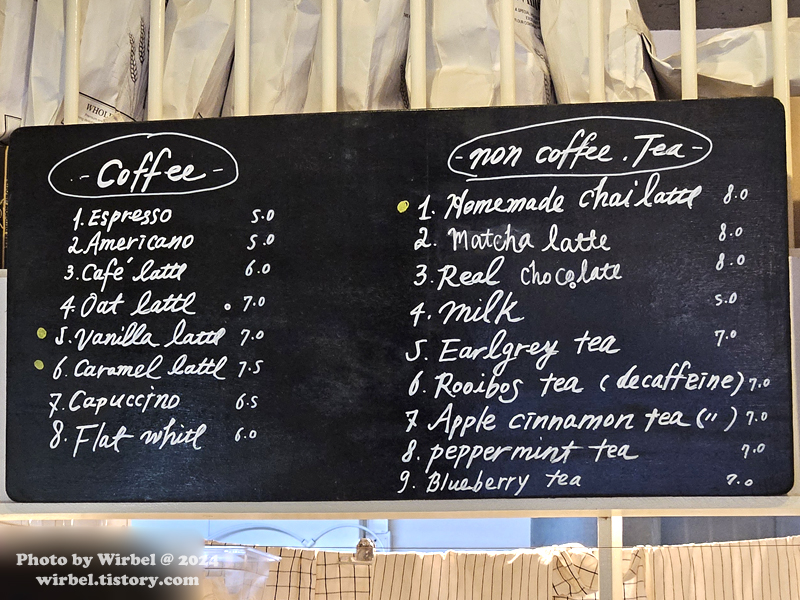 WHOL
- Coffee -
1. Espresso 5.0
2. Americano 5.0
3. Café latte 6.0
4. Oat latte 7.0
5. Vanilla latte 7.0
6. Caramel latte 7.5
7. Capuccino 6.5
8. Flat white 6.0
- non coffee . Tea -
1. Homemade chai latte 8.0
2. Matcha latte 8.0
3. Real chocolate 8.0
4. milk 5.0
5. Earlgrey tea 7.0
6. Rooibos tea (decaffeine) 7.0
7 Apple cinnamon tea (") 7.0
8. peppermint tea 7.0
9. Blueberry tea 7.0
Photo by Wirbel @ 2024
wirbel.tistory.com